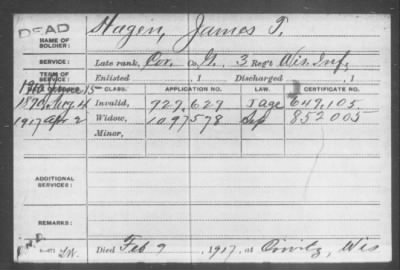 DEAD
NAME OF SOLDIER: Hagen, James T.
SERVICE: Late rank, Cor. Co. G, 3 Reg't Wis. Inf.
TERM OF SERVICE: Enlisted , 1 Discharged , 1
CLASS. APPLICATION NO. LAW. CERTIFICATE NO.
Aug. 4 Invalid, 927,627 J age 649,105
1917 Apr 2 Widow, 1097578 Sep 852005
Minor,
ADDITIONAL SERVICES:
REMARKS:
Died Feb 9, 1917, at Wis